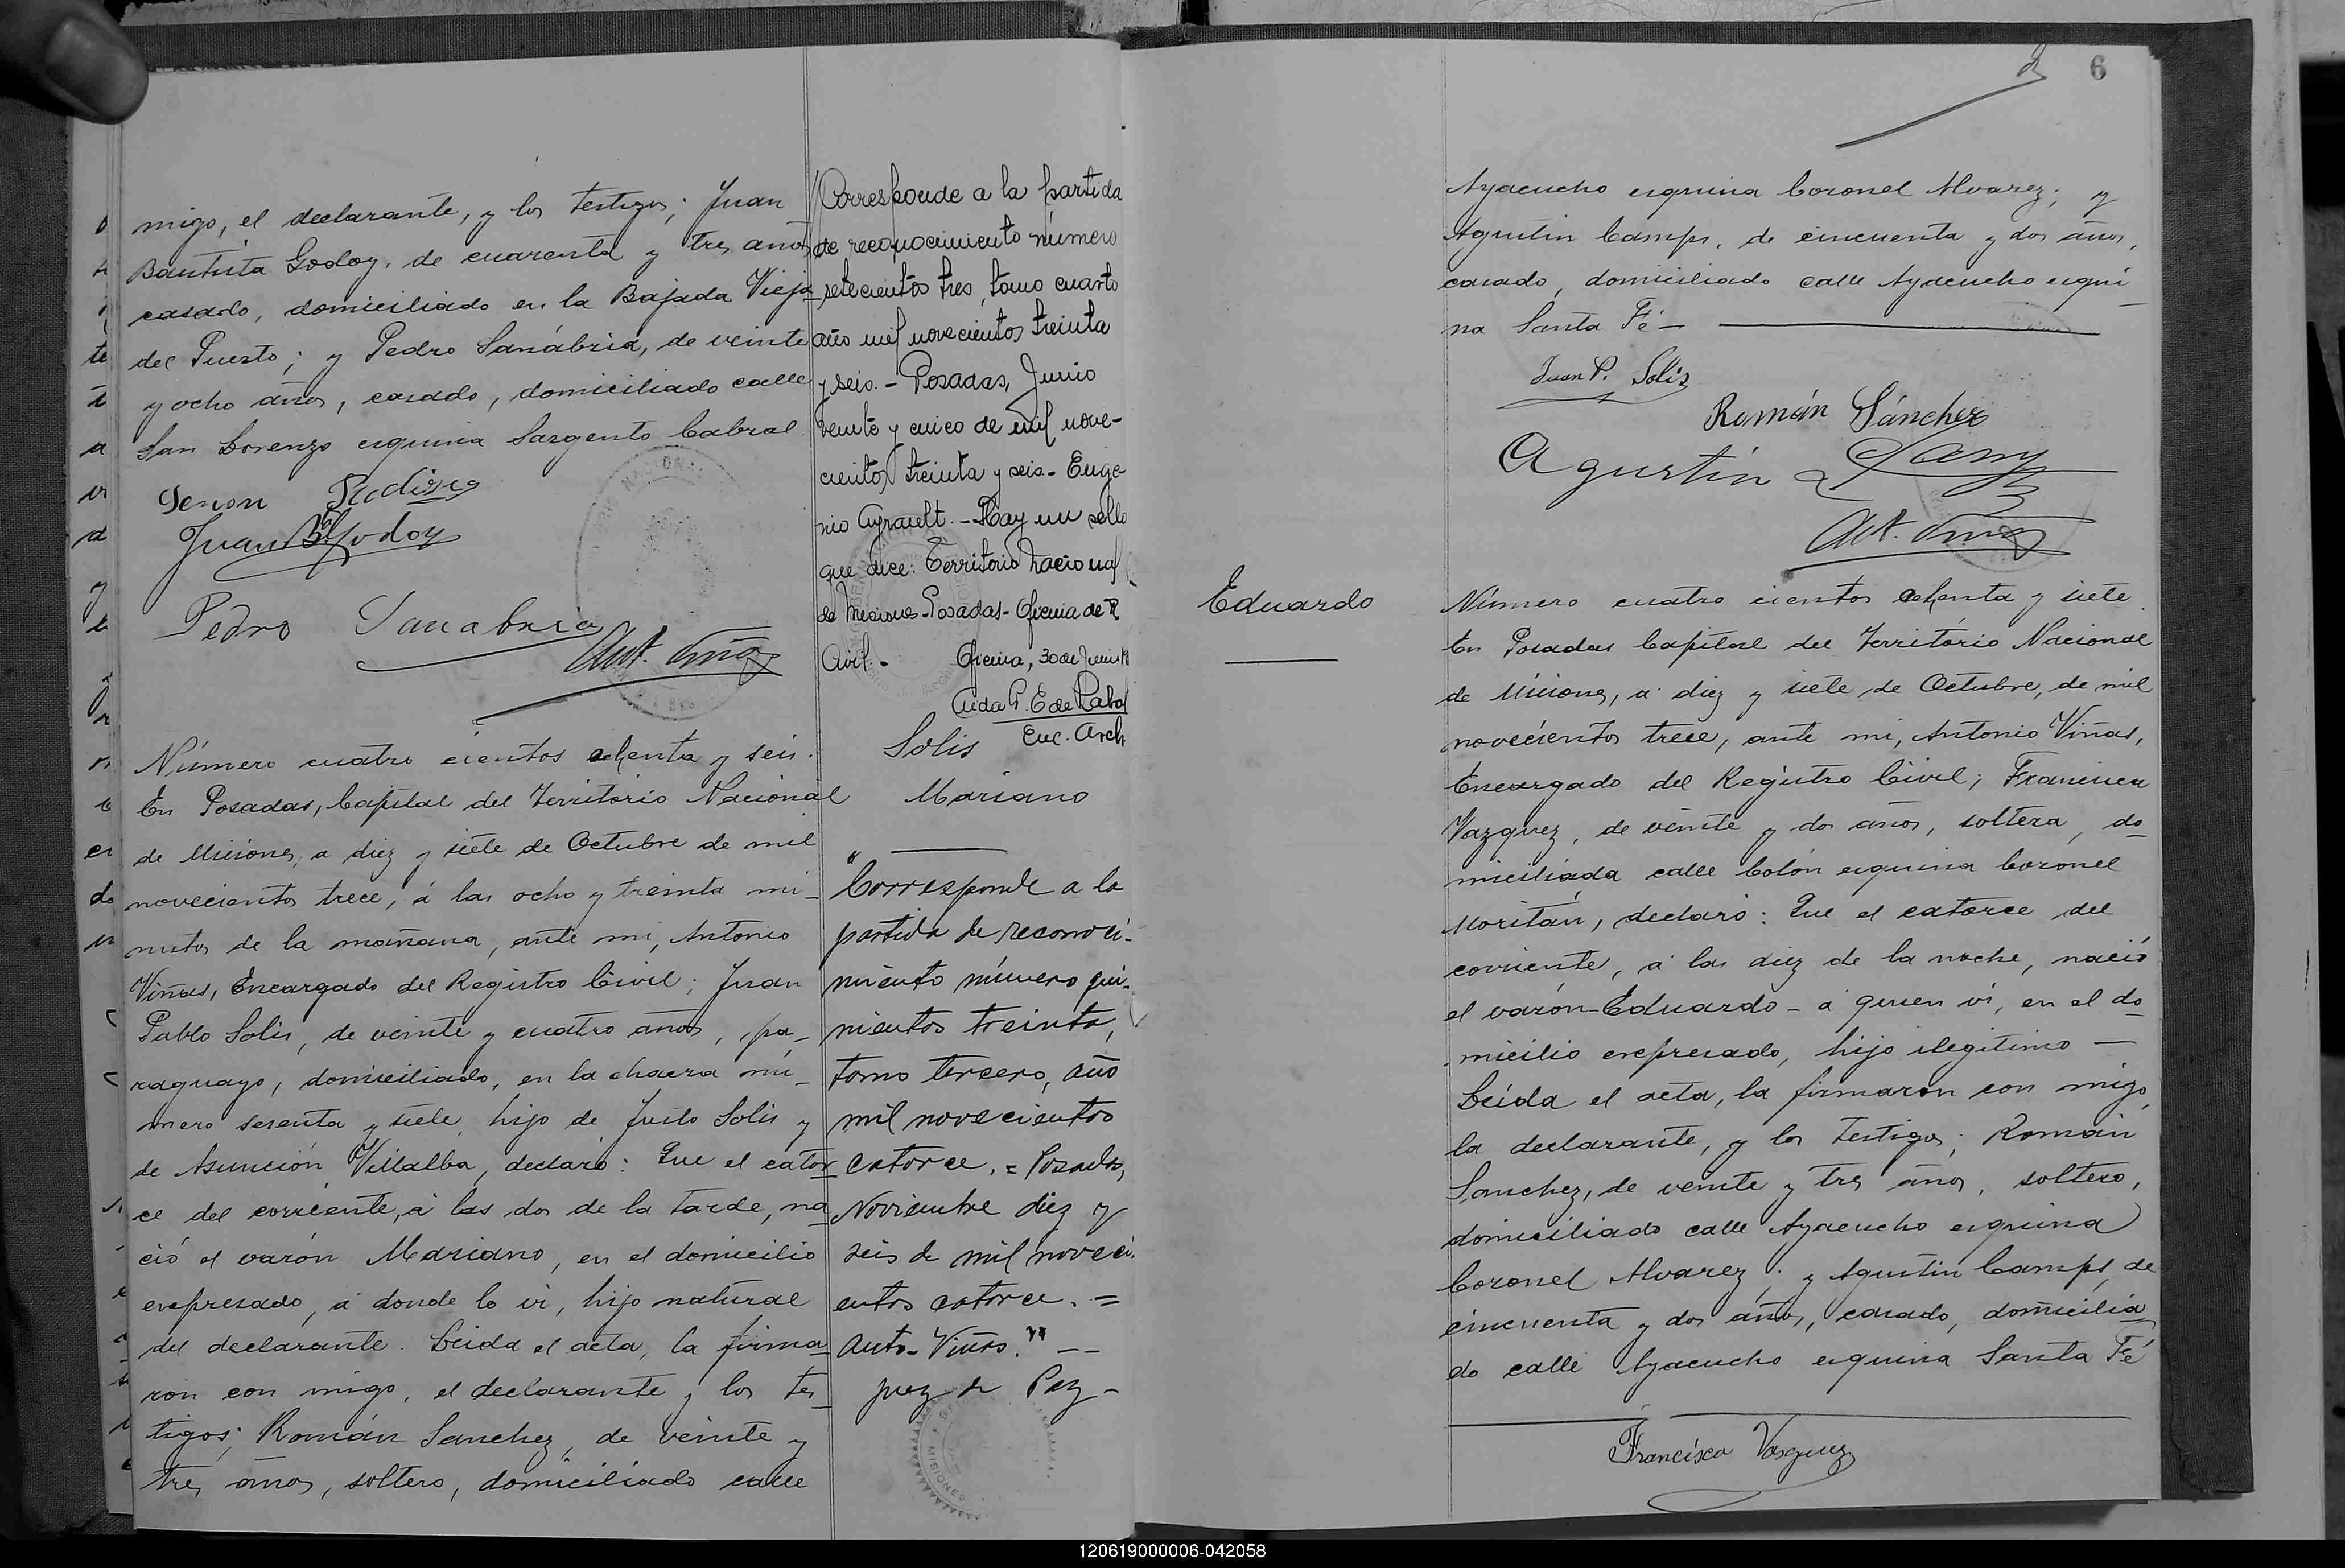 migo, el declarante, y los testigos; Juan
Bautista Godoy, de cuarenta y tres años
casado, domiciliado en la Bajada Vieja
del Puerto; y Pedro Sanábria, de veinte
y ocho años, casado, domiciliado calle
San Lorenzo esquina Sargento Cabral
Juan Bta Godoy
Pedro Sanabria
Ant. Viñas
Número cuatro cientos ochenta y seis.
En Posadas, Capital del Territorio Nacional
de Misiones, a diez y siete de Octubre de mil
novecientos trece, á las ocho y treinta mi-
nutos de la mañana, ante mi, Antonio
Viñas, Encargado del Registro Civil; Juan
Pablo Solis, de veinte y cuatro años, pa-
raguayo, domiciliado, en la chacra nú-
mero sesenta y siete, hijo de Justo Solis y
de Asunción Villalba, declaró: Que el cator-
ce del corriente, á las dos de la tarde, na-
ció el varón Mariano, en el domicilio
expresado, á donde lo vi, hijo natural
del declarante. Leida el acta, la firma-
ron con migo, el declarante y los tes-
tigos; Román Sanchez, de veinte y
tres años, soltero, domiciliado calle
Corresponde a la partida
de reconocimiento número
setecientos tres, tomo cuarto
año mil novecientos treinta
y seis.- Posadas, Junio
veinte y cinco de mil nove-
cientos treinta y seis- Euge-
nio Ayrault.- Hay un sello
que dice: Territorio Nacional
de Misiones-Posadas-Oficina de R
Civil.- Oficina, 30 de Junio
Enc. Arch
Solis
Mariano
"Corresponde a la
partida de reconoci-
miento número qui-
nientos treinta,
tomo tercero, año
mil novecientos
catorce.= Posadas,
Noviembre diez y
seis de mil noveci-
entos catorce.=
Anto- Viñas."--
Juez de Paz-
6
Ayacucho esquina Coronel Alvarez; y
Agustin Camps, de cincuenta y dos años,
casado, domiciliado calle Ayacucho esqui-
na Santa Fé-
Juan P. Solis
Román Sánchez
Agustín Camps
Ant. Viñas
Eduardo
Número cuatro cientos ochenta y siete.
En Posadas Capital del Territorio Nacional
de Misiones, a diez y siete de Octubre, de mil
novecientos trece, ante mi, Antonio Viñas,
Encargado del Registro Civil; Francisca
Vazquez, de veinte y dos años, soltera, do-
miciliada calle Colón esquina Coronel
Moritán, declaró: Que el catorce del
corriente, a las diez de la noche, nació
el varón-Eduardo-a quien vi, en el do-
micilio expresado, hijo ilegitimo-
Leida el acta, la firmaron con migo,
la declarante, y los testigos; Román
Sanchez, de veinte y tres años, soltero,
domiciliado calle Ayacucho esquina
Coronel Alvarez; y Agustin Camps, de
cincuenta y dos años, casado, domicilia-
do calle Ayacucho esquina Santa Fé
Francisca Vasquez
120619000006-042058